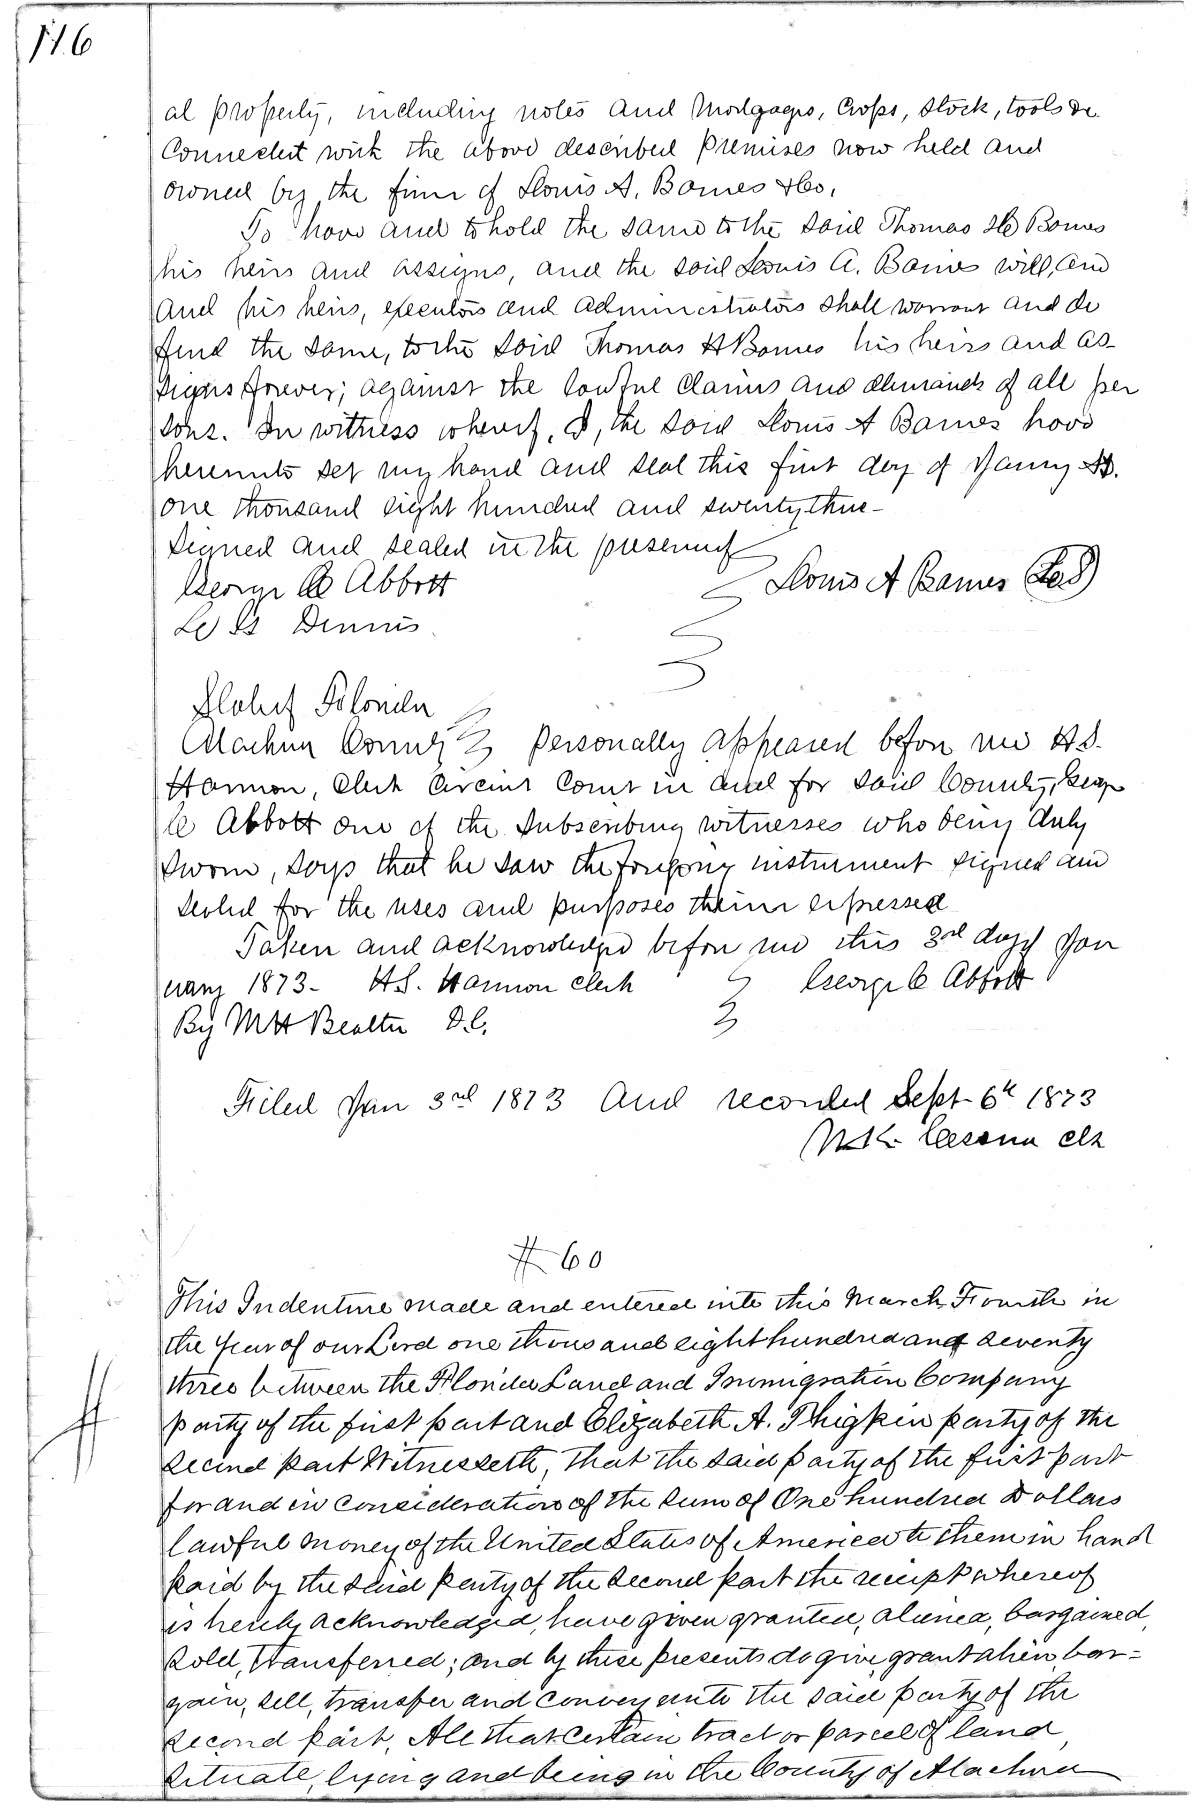 116
al property, including notes and Mortgages, Crops, Stock, tools &c.
Connected with the above described premises now held and
owned by the firm of Louis A. Barnes & Co.
To have and to hold the same to the said Thomas H Barnes
his heirs and assigns, and the said Louis A. Barnes will, and
and his heirs, executors and administrators shall warrant and de
fend the same, to the said Thomas H Barnes his heirs and as-
signs forever; against the lawful claims and demands of all per
sons. In witness whereof, I, the said Louis A Barnes have
hereunto set my hand and seal this first day of Janury
one thousand eight hundred and seventy three-
Signed and sealed in the presence of
George C Abbott
Louis A Barnes (LS)
L G Dennis
State of Florida
Alachua County personally appeared before me H.S.
Harmon, Clerk Circuit Court in and for said County, George
C Abbott one of the subscribing witnesses who being duly
sworn, says that he saw the foregoing instrument signed and
sealed for the uses and purposes therein expressed
Taken and acknowledged before me this 3rd day of Jan
uary 1873- H.S. Harmon Clerk
George C Abbott
By M H D.C.
Filed Jan 3rd 1873 and recorded Sept 6th 1873
Cessna Clk
# 60
This Indenture made and entered into this March Fourth in
the Year of our Lord one thousand eight hundred and seventy
three between the Florida Land and Immigration Company
party of the first part and Elizabeth A. Thigpin party of the
second part Witnesseth, That the said party of the first part
for and in consideration of the sum of One hundred Dollars
lawful money of the United States of America to them in hand
paid by the said party of the second part the receipt whereof
is hereby acknowledged, have given granted, aliened, bargained,
sold, transferred; and by these presents do give, grant alien, bar=
gain, sell, transfer and convey unto the said party of the
second part, All that certain tract or parcel of land,
situate, lying and being in the County of Alachua